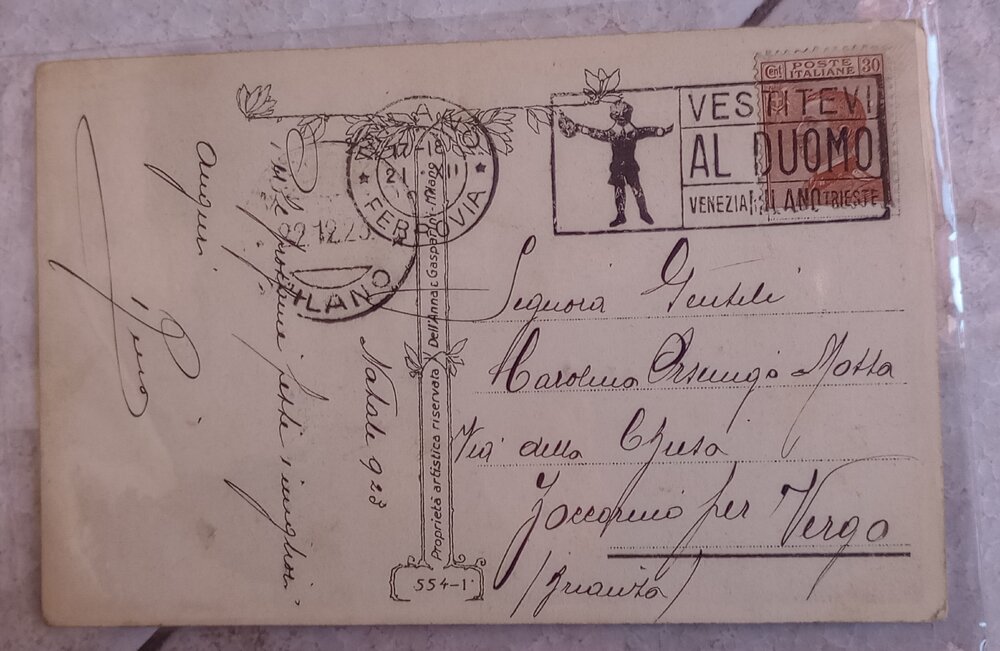 Cent POSTE ITALIANE 30
VESTITEVI
AL DUOMO
VENEZIA MILANO TRIESTE
MILANO
17-18
21 XII
FERROVIA
22.12.23
MILANO
Natale 923
prossime feste i migliori
auguri
Pino
Proprietà artistica riservata Dell'Anna & Gasparini - Milano
554-1
Signora Gentile
Carolina Orsenigo Motta
Via della Chiesa
Zoccorino per Vergo
(Brianza)